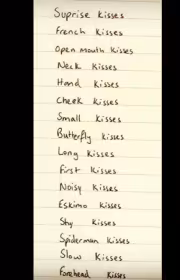 Suprise Kisses
French Kisses
Open mouth Kisses
Neck Kisses
Hand Kisses
Cheek Kisses
Small Kisses
Butterfly Kisses
Long Kisses
First Kisses
Noisy Kisses
Eskimo Kisses
Shy Kisses
Spiderman Kisses
Slow Kisses
Forehead Kisses